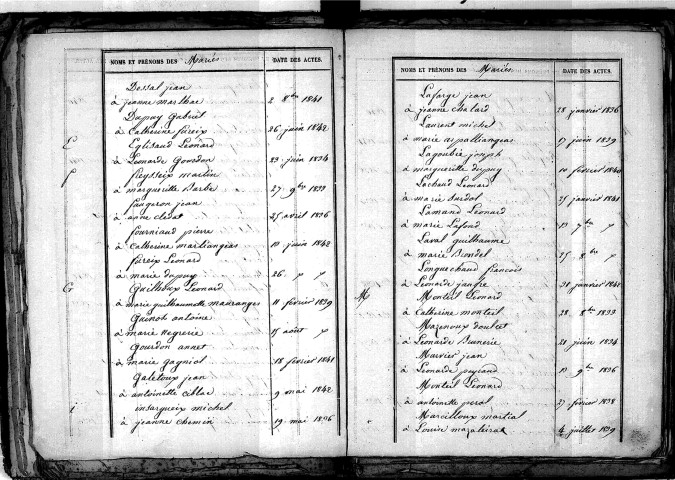 NOMS ET PRÉNOMS DES Mariés
DATE DES ACTES.
Dessal jean
à jeanne marthac 2 8bre 1841
Dupuy Gabriel
à Catherine fureix 26 juin 1842
E Eglizaud Léonard
à Léonarde Gourdon 23 juin 1834
f feysseix martin
à margueritte Barbe 27 9bre 1833
faugeron jean
à anne cledat 25 avril 1836
fourniaud pierre
à Catherine martiangeas 10 juin 1842
fureix Léonard
à marie dupuy 26 " "
G Guilloux Léonard
à marie guilhaumette mauranges 11 février 1839
Guinot antoine
à marie negrerie 15 août "
Gourdon annet
à marie gagniol 18 février 1841
Galetoux jean
à antoinette 9 mai 1842
i intargueix michel
à jeanne chemin 19 mai 1836
NOMS ET PRÉNOMS DES Mariés
DATE DES ACTES.
Lafarge jean
à jeanne chatard 28 janvier 1836
Laurent michel
à marie aspalliangeas 17 juin 1839
Lagoubie joseph
à marguerite dupuy 10 février 1840
Lachaud Léonard
à marie 25 janvier 1841
Lamand Léonard
à marie Lafond 13 7bre "
Laval guilhaume
à marie Blondel 25 8bre "
Longuechaud francois
à Léonarde janfre 31 janvier 1841
M Monteil Léonard
à Catherine monteil 28 8bre 1833
Mazenoux doulcet
à Léonarde Brunerie 21 juin 1834
Murvier jean
à Léonarde peyraud 13 9bre 1836
Monteil Léonard
à antoinette perol 27 février 1838
Marcilloux martial
à Louise mazaleirat 4 juillet 1839